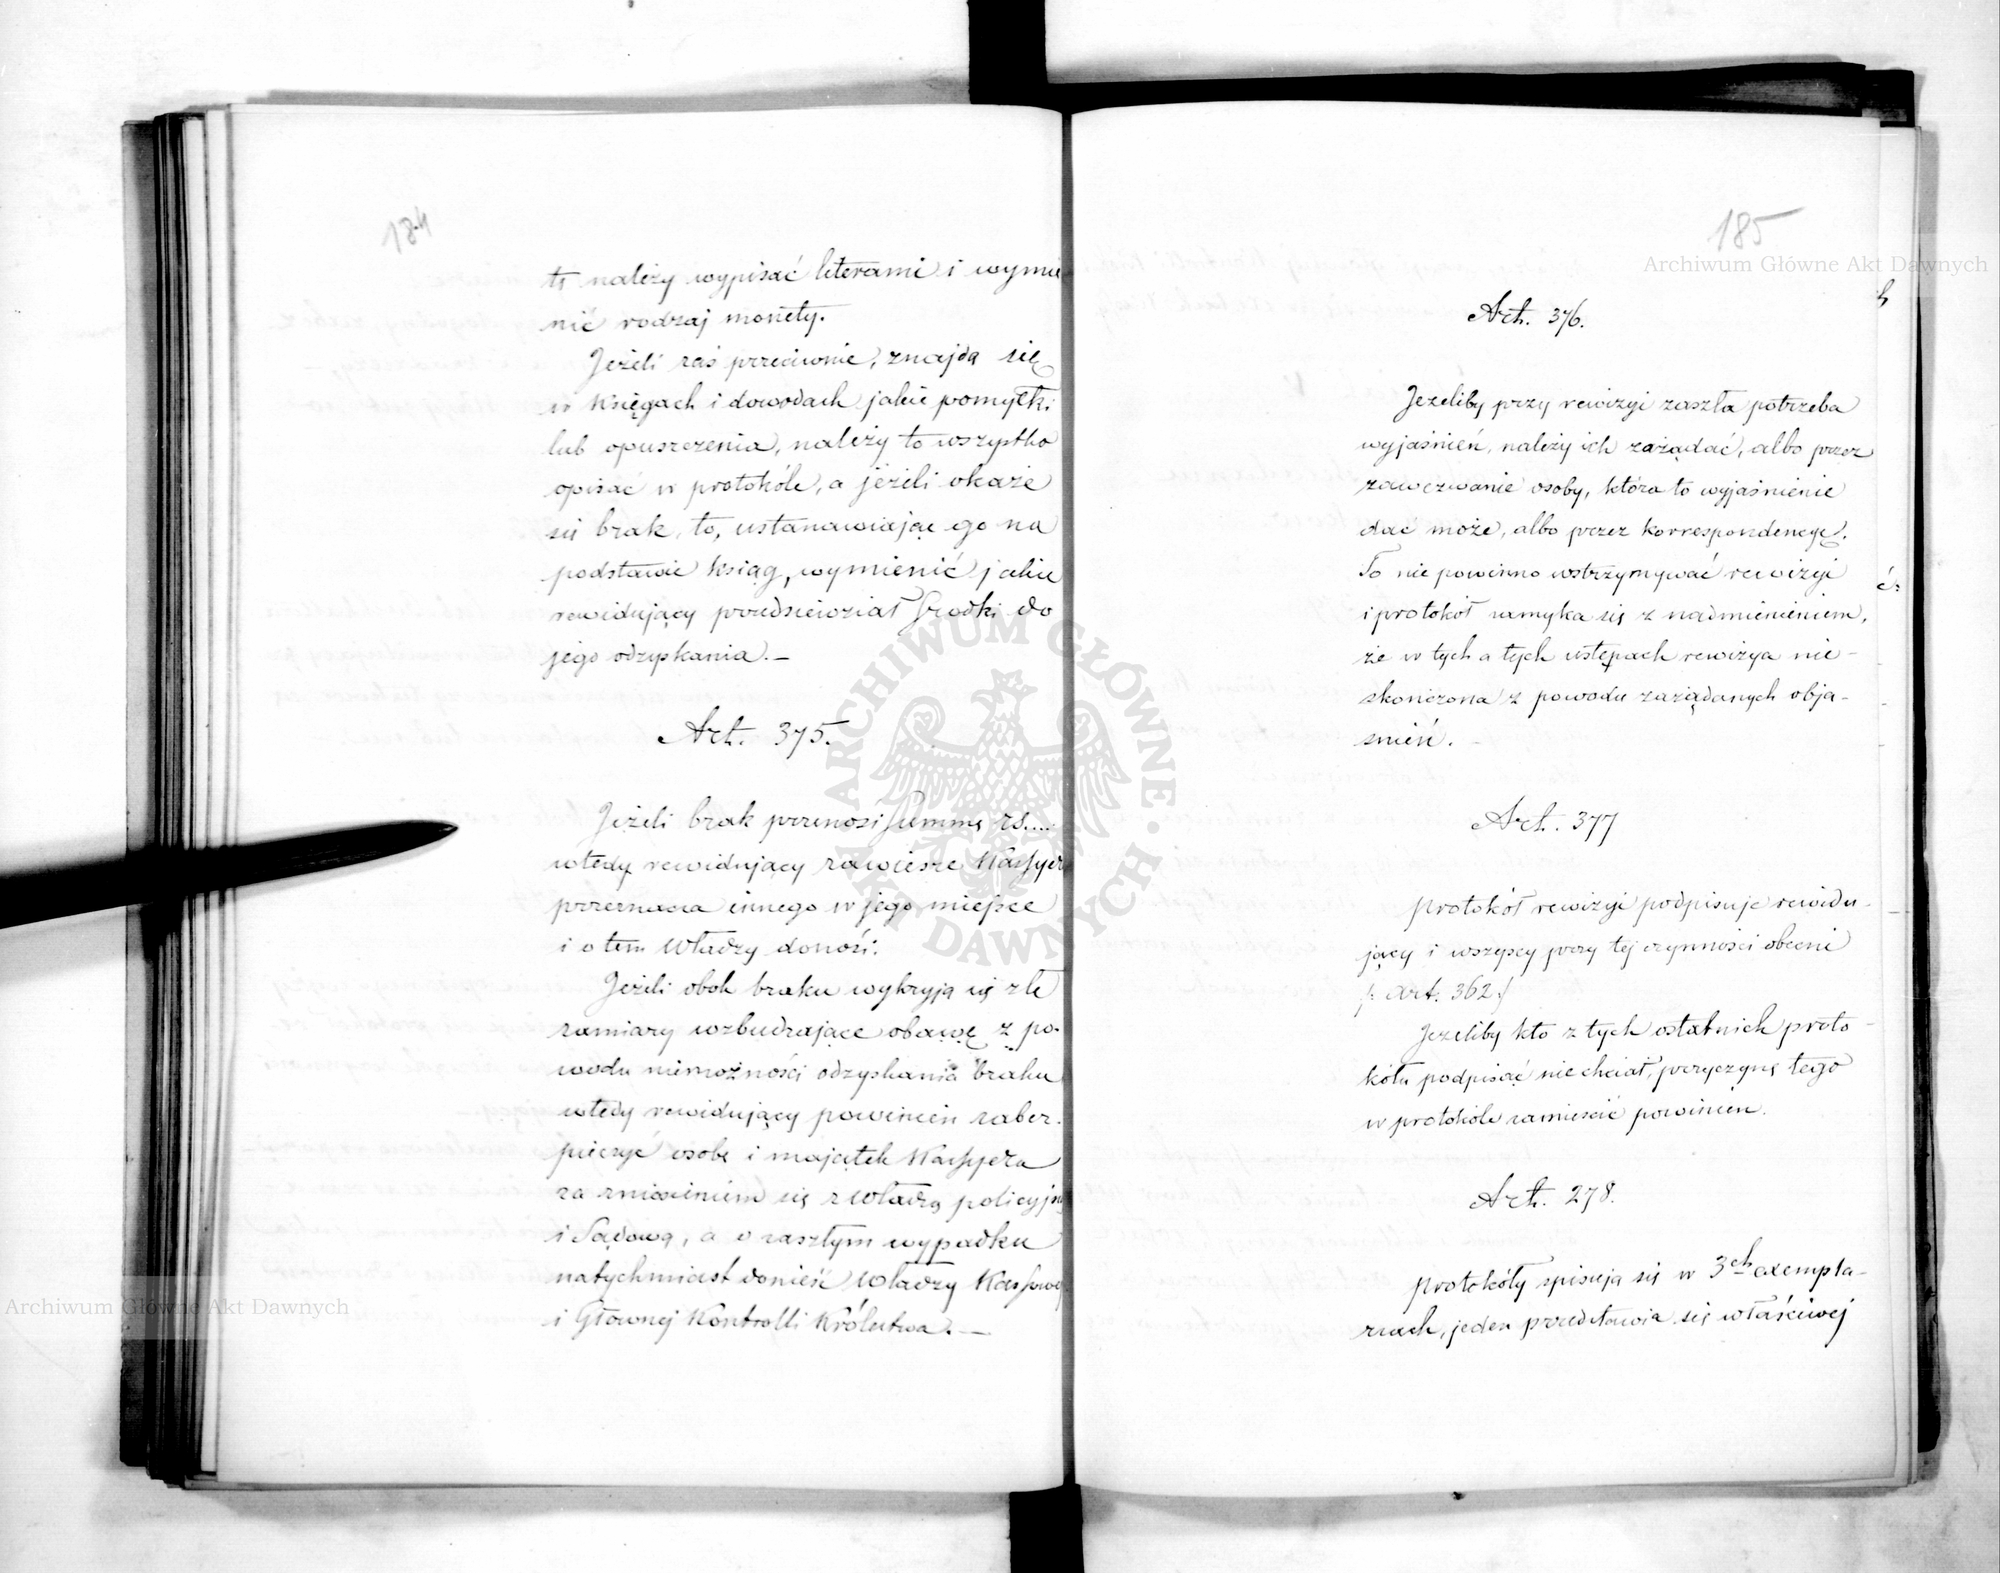 184
tę należy wypisać literami i wymie
nić rodzaj monety.
Jeżeli zaś przeciwnie, znajdą się
w księgach i dowodach jakie pomyłki
lub opuszczenia, należy to wszystko
opisać w protokóle, a jeżeli okaże
się brak, to, ustanawiając go na
podstawie ksiąg, wymienić jakie
rewidujący przedsięwziął środki do
jego odzyskania. —
Art. 375.
Jeżeli brak przenosi summę rs....
wtedy rewidujący zawiesza Kassyera
przeznacza innego w jego miejsce
i o tem Władzy donosi.
Jeżeli obok braku wykryją się złe
zamiary wzbudzające obawę z po-
wodu niemożności odzyskania braku
wtedy rewidujący powinien zabez-
pieczyć osobę i majątek Kassyera
za zniesieniem się z Władzą policyjną
i Sądową, a o zaszłym wypadku
natychmiast donieść Władzy Kassowej
i Głównej Kontrolli Królestwa. —
185
Art. 376.
Jezeliby przy rewizyi zaszła potrzeba
wyjaśnień, należy ich zażądać, albo przez
zawezwanie osoby, która to wyjaśnienie
dać może, albo przez korrespondencyę.
To nie powinno wstrzymywać rewizyi
i protokół zamyka się z nadmienieniem,
że w tych a tych ustępach rewizya nie-
skończona z powodu zażądanych obja-
śnień. —
Art. 377
Protokół rewizyi podpisuje rewidu-
jący i wszyscy przy tej czynności obecni
/: Art. 362:/
Jezeliby kto z tych ostatnich proto-
kółu podpisać nie chciał, przyczynę tego
w protokóle zamieścić powinien.
Art. 278.
Protokóły spisują się w 3ch exempla-
rzach, jeden przedstawia się właściwej
Archiwum Główne Akt Dawnych
Archiwum Główne Akt Dawnych
ARCHIWUM GŁÓWNE AKT DAWNYCH